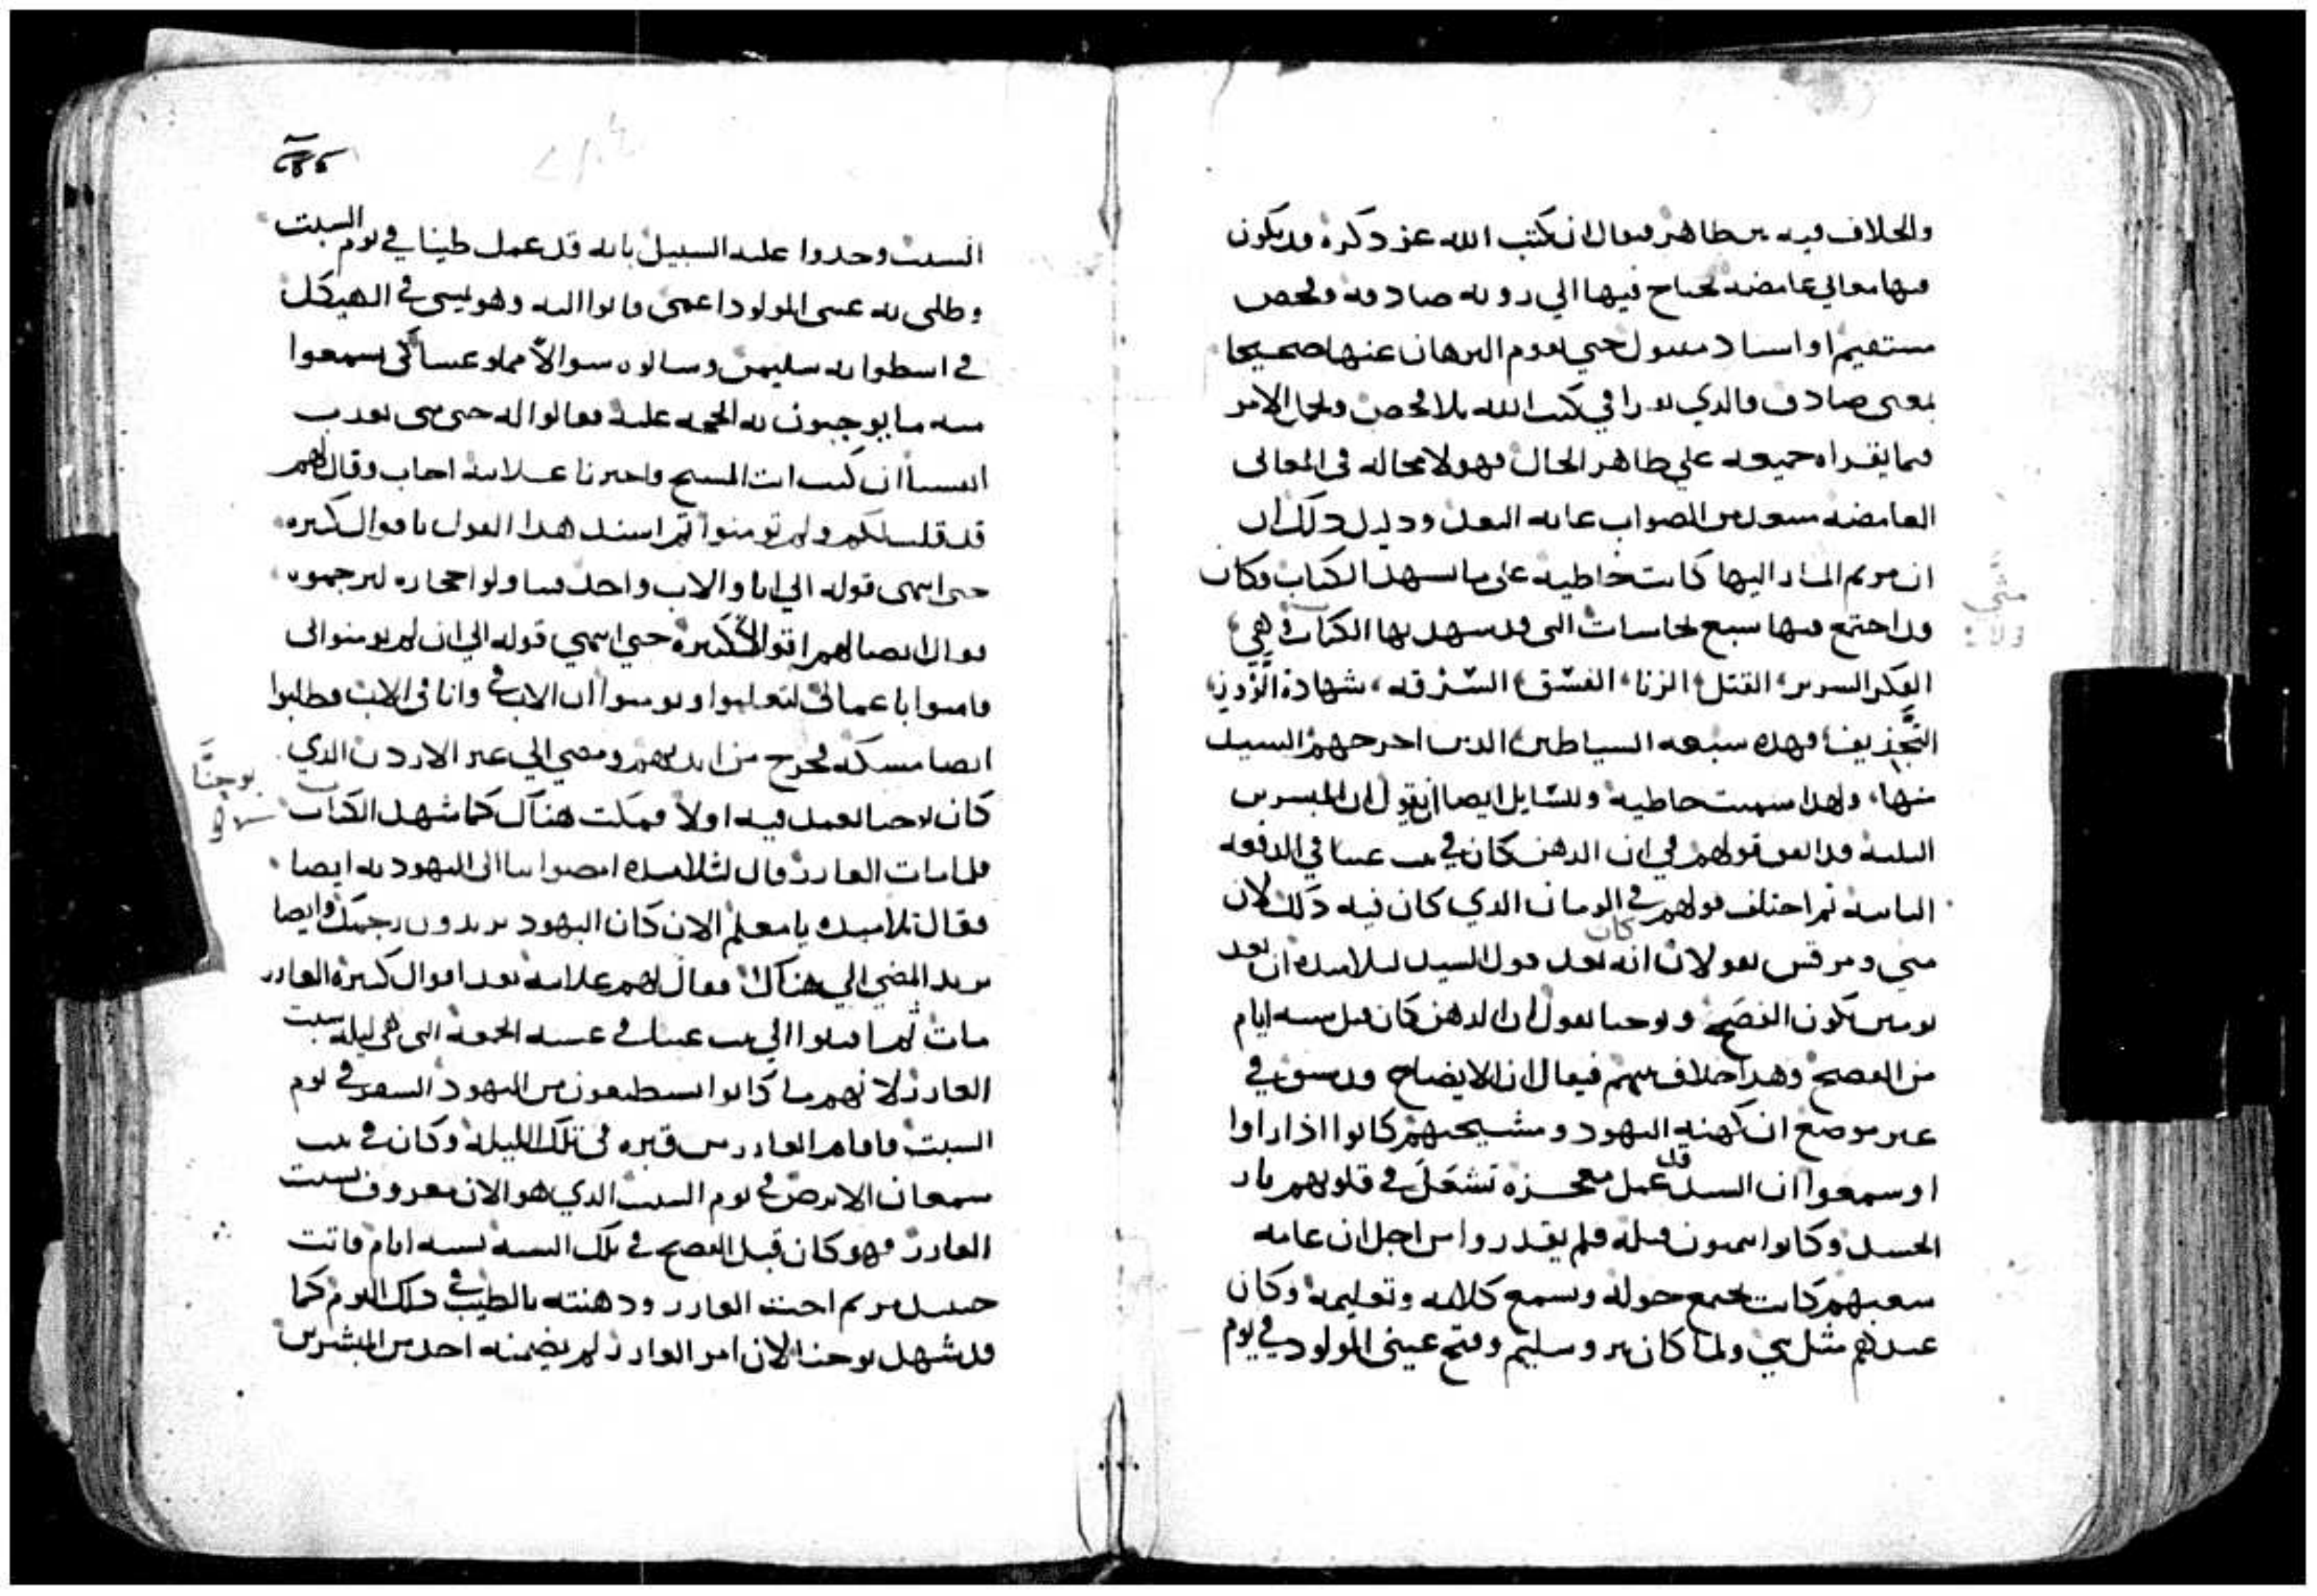 والخلاف فيه بين ظاهر فيقال ان كتب الله عز ذكره قد يكون
فيها معاني غامضه تحتاج فيها الي رويه صادقه وفحص
مستقيم او اسناد مقبول حتي يقوم البرهان عنها صحيحا
بمعنى صادق والذي يقرا في كتب الله بلا فحص ويحمل الامر
فيما يقراه جميعه علي ظاهر الحال فهو لا محاله في المعاني
الغامضه يبعد من الصواب غايه البعد ودليل ذلك ان
ان مريم المشار اليها كانت خاطيه على ما يشهد الكتاب وكان
قد اجتمع فيها سبع نجاسات التي قد يشهد بها الكتاب وهي
الفكر الشرير، القتل، الزنا، الفسق، السرقه، شهادة الزور،
التجذيف فهذه سبعه الشياطين الذين اخرجهم السيد
منها، ولهذا سميت خاطيه وللسايل ايضا ان يقول ان المبشرين
الثلثه قد اتفق قولهم في ان الدهن كان في بيت عنيا في الدفعه
الثانيه ثم اختلف قولهم في الزمان الذي كان فيه ذلك لان
متي ومرقس يقولان انه كان بعد قول السيد لتلاميذه ان بعد
يومين يكون الفصح ويوحنا يقول ان الدهن كان قبل سته ايام
من الفصح وهذا خلاف بينهم فيقال ان الايضاح قد سبق في
غير موضع ان كهنه اليهود ومشيختهم كانوا اذا راوا
او سمعوا ان السيد قد عمل معجزه تشتعل في قلوبهم نار
الحسد وكانوا يتمنون قتله فلم يقدروا من اجل ان عامه
شعبهم كانت تجتمع حوله وتسمع كلامه وتعليمه وكان
عندهم مثل نبي ولما كان بيروسليم وفتح عيني المولود في يوم
السبت وجدوا عليه السبيل بانه قد عمل طينا في يوم السبت
وطلى به عيني المولود اعمى فاتوا اليه وهو يمشي في الهيكل
في اسطوانه سليمن وسالوه سوالا مماوعسا كي يسمعوا
منه ما يوجبون به الحجه عليه فقالوا له حتى متى تعذب
انفسنا ان كنت انت المسيح فاخبرنا علانيه اجاب وقال لهم
قد قلت لكم ولم تومنوا ثم اسند هذا القول باقوال كثيره
حتى انتهى قوله الي انا والاب واحد فتناولوا حجاره ليرجموه
فقال ايضا لهم اقوالا كثيره حتي انتهي قوله الي ان لم تومنوا بي
فامنوا باعمالي لتعلموا وتومنوا ان الاب في وانا في الاب فطلبوا
ايضا مسكه فخرج من ايديهم ومضي الي عبر الاردن الذي
كان يوحنا يعمد فيه اولا فمكث هناك كما شهد الكتاب
يوحنا
فلما مات العازر قال لتلاميذه امضوا بنا الى اليهوديه ايضا
فقال تلاميذه يا معلم الان كان اليهود يريدون رجمك وايضا
تريد المضي الي هناك فقال لهم علانيه بعد اقوال كثيرة العازر
مات ثم اقبلوا الي بيت عنيا في عشيه الجمعه التي هي ليله سبت
العازر لانهم ما كانوا يستطيعون من اليهود السفر في يوم
السبت فاقام العازر من قبره في تلك الليله وكان في بيت
سمعان الابرص في يوم السبت الذي هو الان معروف بسبت
العازر فهو كان قبل الفصح في تلك السنه بسته ايام فاتت
حينيذ مريم اخت العازر ودهنته بالطيب في ذلك اليوم كما
قد شهد يوحنا لان امر العازر لم يضمنه احد من المبشرين